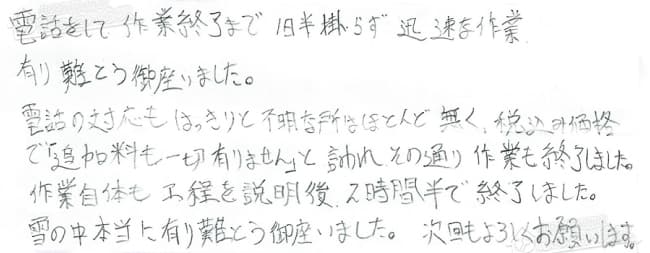 電話をして作業終了まで1日半掛らず迅速な作業
有り難とう御座いました。
電話の対応もはっきりと不明な所はほとんど無く、税込み価格
で「追加料も一切有りません」と言われ その通り作業も終了しました。
作業自体も工程を説明後、2時間半で終了しました。
雪の中本当に有り難とう御座いました。 次回もよろしくお願いします。